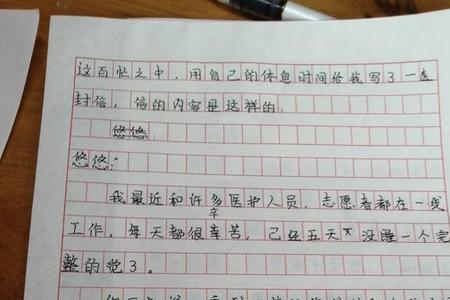 这百忙之中，用自己的休息时间给我写了一
封信，信的内容是这样的
悠悠：
悠悠：
我最近和许多医护人员，志愿者都在一线
工作，每天都很辛苦，己经五天 没睡一个完
整的觉了。